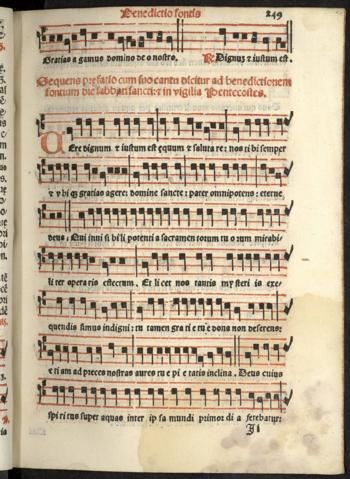 Benedictio fontis 249
Gratias agamus domino deo nostro. ℟ Dignū ⁊ iustum est.
Sequens prefatio cum suo cantu dicitur ad benedictionem
fontium die sabbati sancti: ⁊ in vigilia Pentecostes.
Ere dignum ⁊ iustum est equum ⁊ salutare: nos tibi semper
⁊ vbiqȝ gratias agere: domine sancte: pater omnipotens: eterne
deus. Qui inuisibili potentia sacramentorum tuorum mirabi-
liter operaris effectum. Et licet nos tantis mysteriis exe-
quendis simus indigni: tu tamen gratie tue dona non deserens:
etiam ad preces nostras aures tue pietatis inclina. Deus cuius
spiritus super aquas inter ipsa mundi primordia ferebatur: